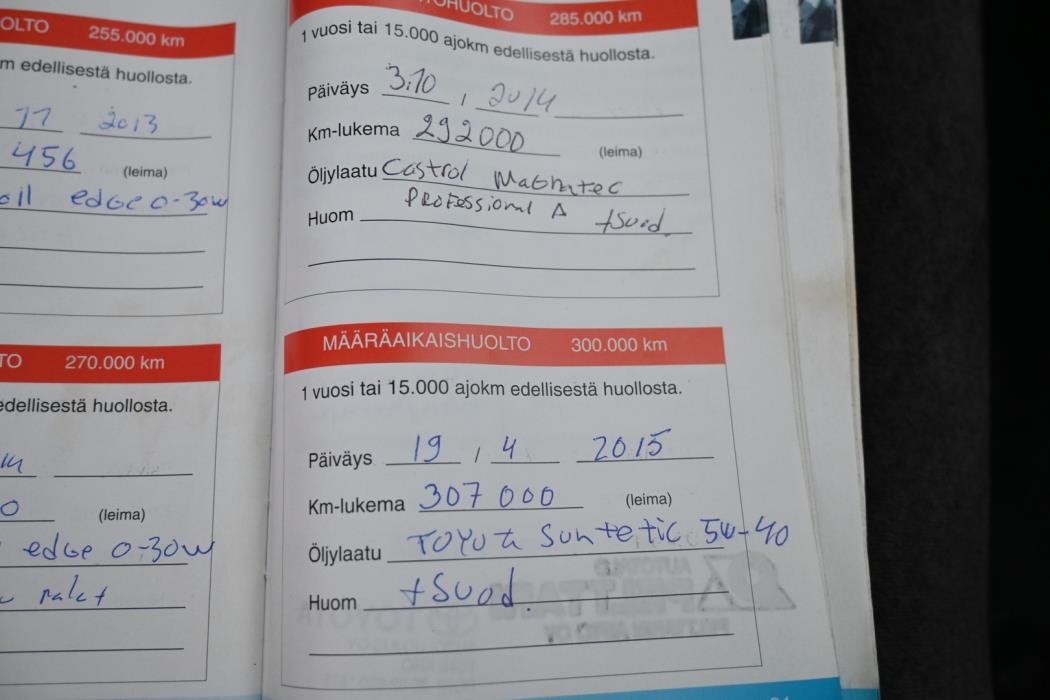 OLTO 255.000 km
m edellisestä huollosta.
11 2013
456 (leima)
oil edge 0-30w
TO 270.000 km
edellisestä huollosta.
14
0 (leima)
edge 0-30w
HUOLTO 285.000 km
1 vuosi tai 15.000 ajokm edellisestä huollosta.
Päiväys 3.10 , 2014
Km-lukema 292000 (leima)
Öljylaatu Castrol Magnatec
Professional A
Huom +Suod.
MÄÄRÄAIKAISHUOLTO 300.000 km
1 vuosi tai 15.000 ajokm edellisestä huollosta.
Päiväys 19 / 4 2015
Km-lukema 307 000 (leima)
Öljylaatu TOYOTA Suntetic 5w-40
Huom +Suod.